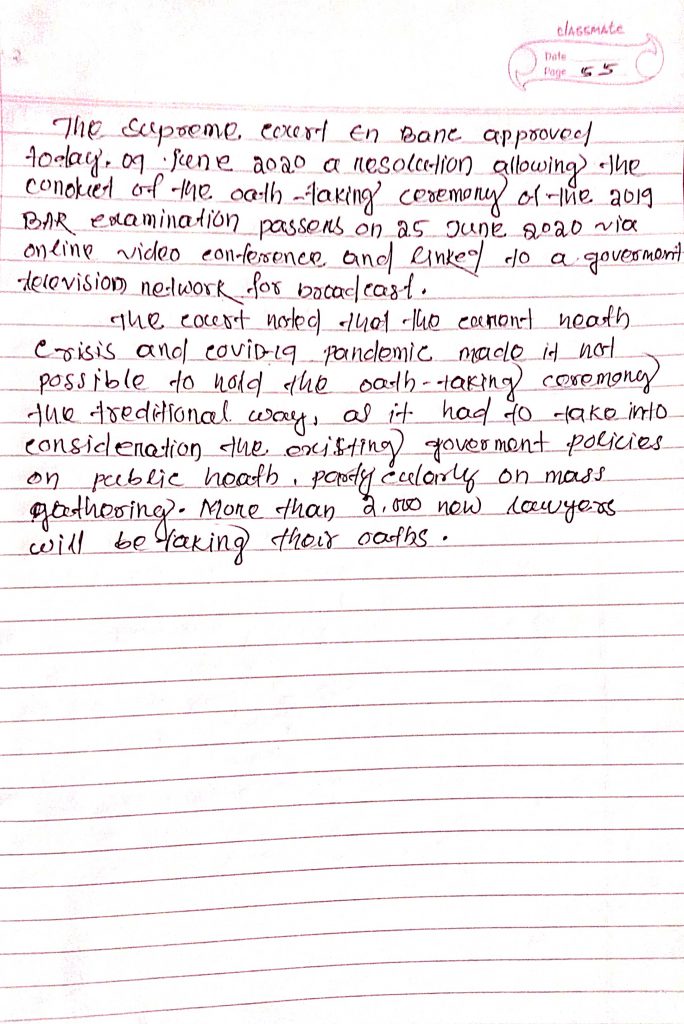 classmate
Date
Page 55
The Supreme court En Banc approved
today, 09 June 2020 a resolution allowing the
conduct of the oath-taking ceremony of the 2019
BAR examination passers on 25 June 2020 via
online video conference and linked to a goverment
television network for broadcast.
The court noted that the current heath
crisis and covid-19 pandemic made it not
possible to hold the oath-taking ceremony
the treditional way, as it had to take into
consideration the existing goverment policies
on public heath, partycularly on mass
gathering. More than 2,000 new lawyers
will be taking their oaths.